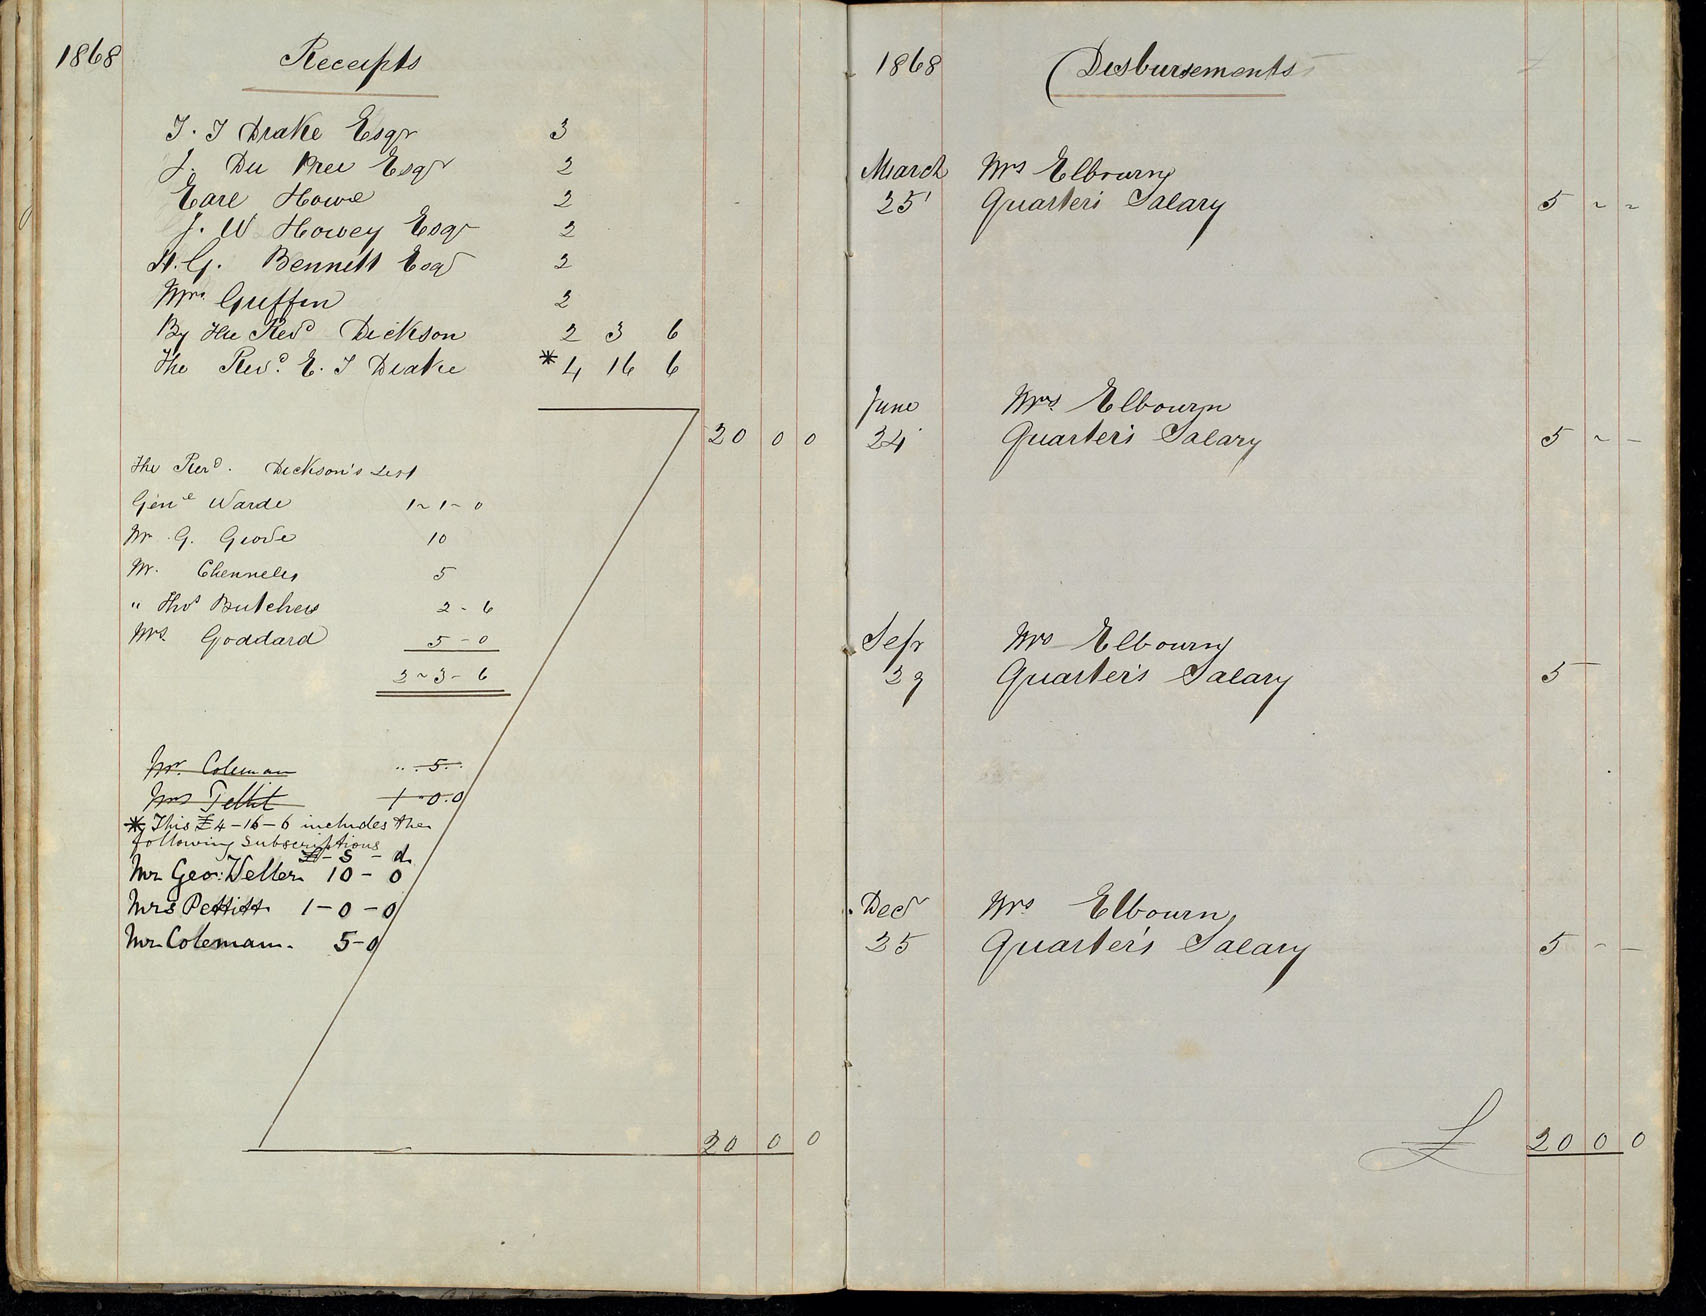 1868 Receipts
T. T Drake Esqr 3
J. Du Pree Esqr 2
Earl Howe 2
J. W Howey Esqr 2
H. G. Bennett Esqr 2
Mrs Griffin 2
By the Revd Dickson 2 3 6
The Revd. E. T Drake * 4 16 6
20 0 0
The Revd. Dickson's List
Genl Warde 1 ~ 1 - 0
Mr G. Grove 10
Mr. Chenneles 5
" Thos Butcher 2 - 6
Mrs. Goddard 5 - 0
2 ~ 3 - 6
Mr. Coleman .. 5 ..
Mrs Pettit 1 . 0 . 0
* This £4-16-6 includes the
following subscriptions
£ - s - d
Mr Geo: Weller 10 - 0
Mrs Pettitt 1 - 0 - 0
Mr Coleman. 5 - 0
20 0 0
1868 Disbursements
March Mrs Elbourn
25 Quarter's Salary 5 ~ ~
June Mrs Elbourn
24 Quarter's Salary 5 ~ -
Sepr Mrs Elbourn
29 Quarter's Salary 5
Decr Mrs Elbourn
25 Quarter's Salary 5 - -
£ 20 0 0